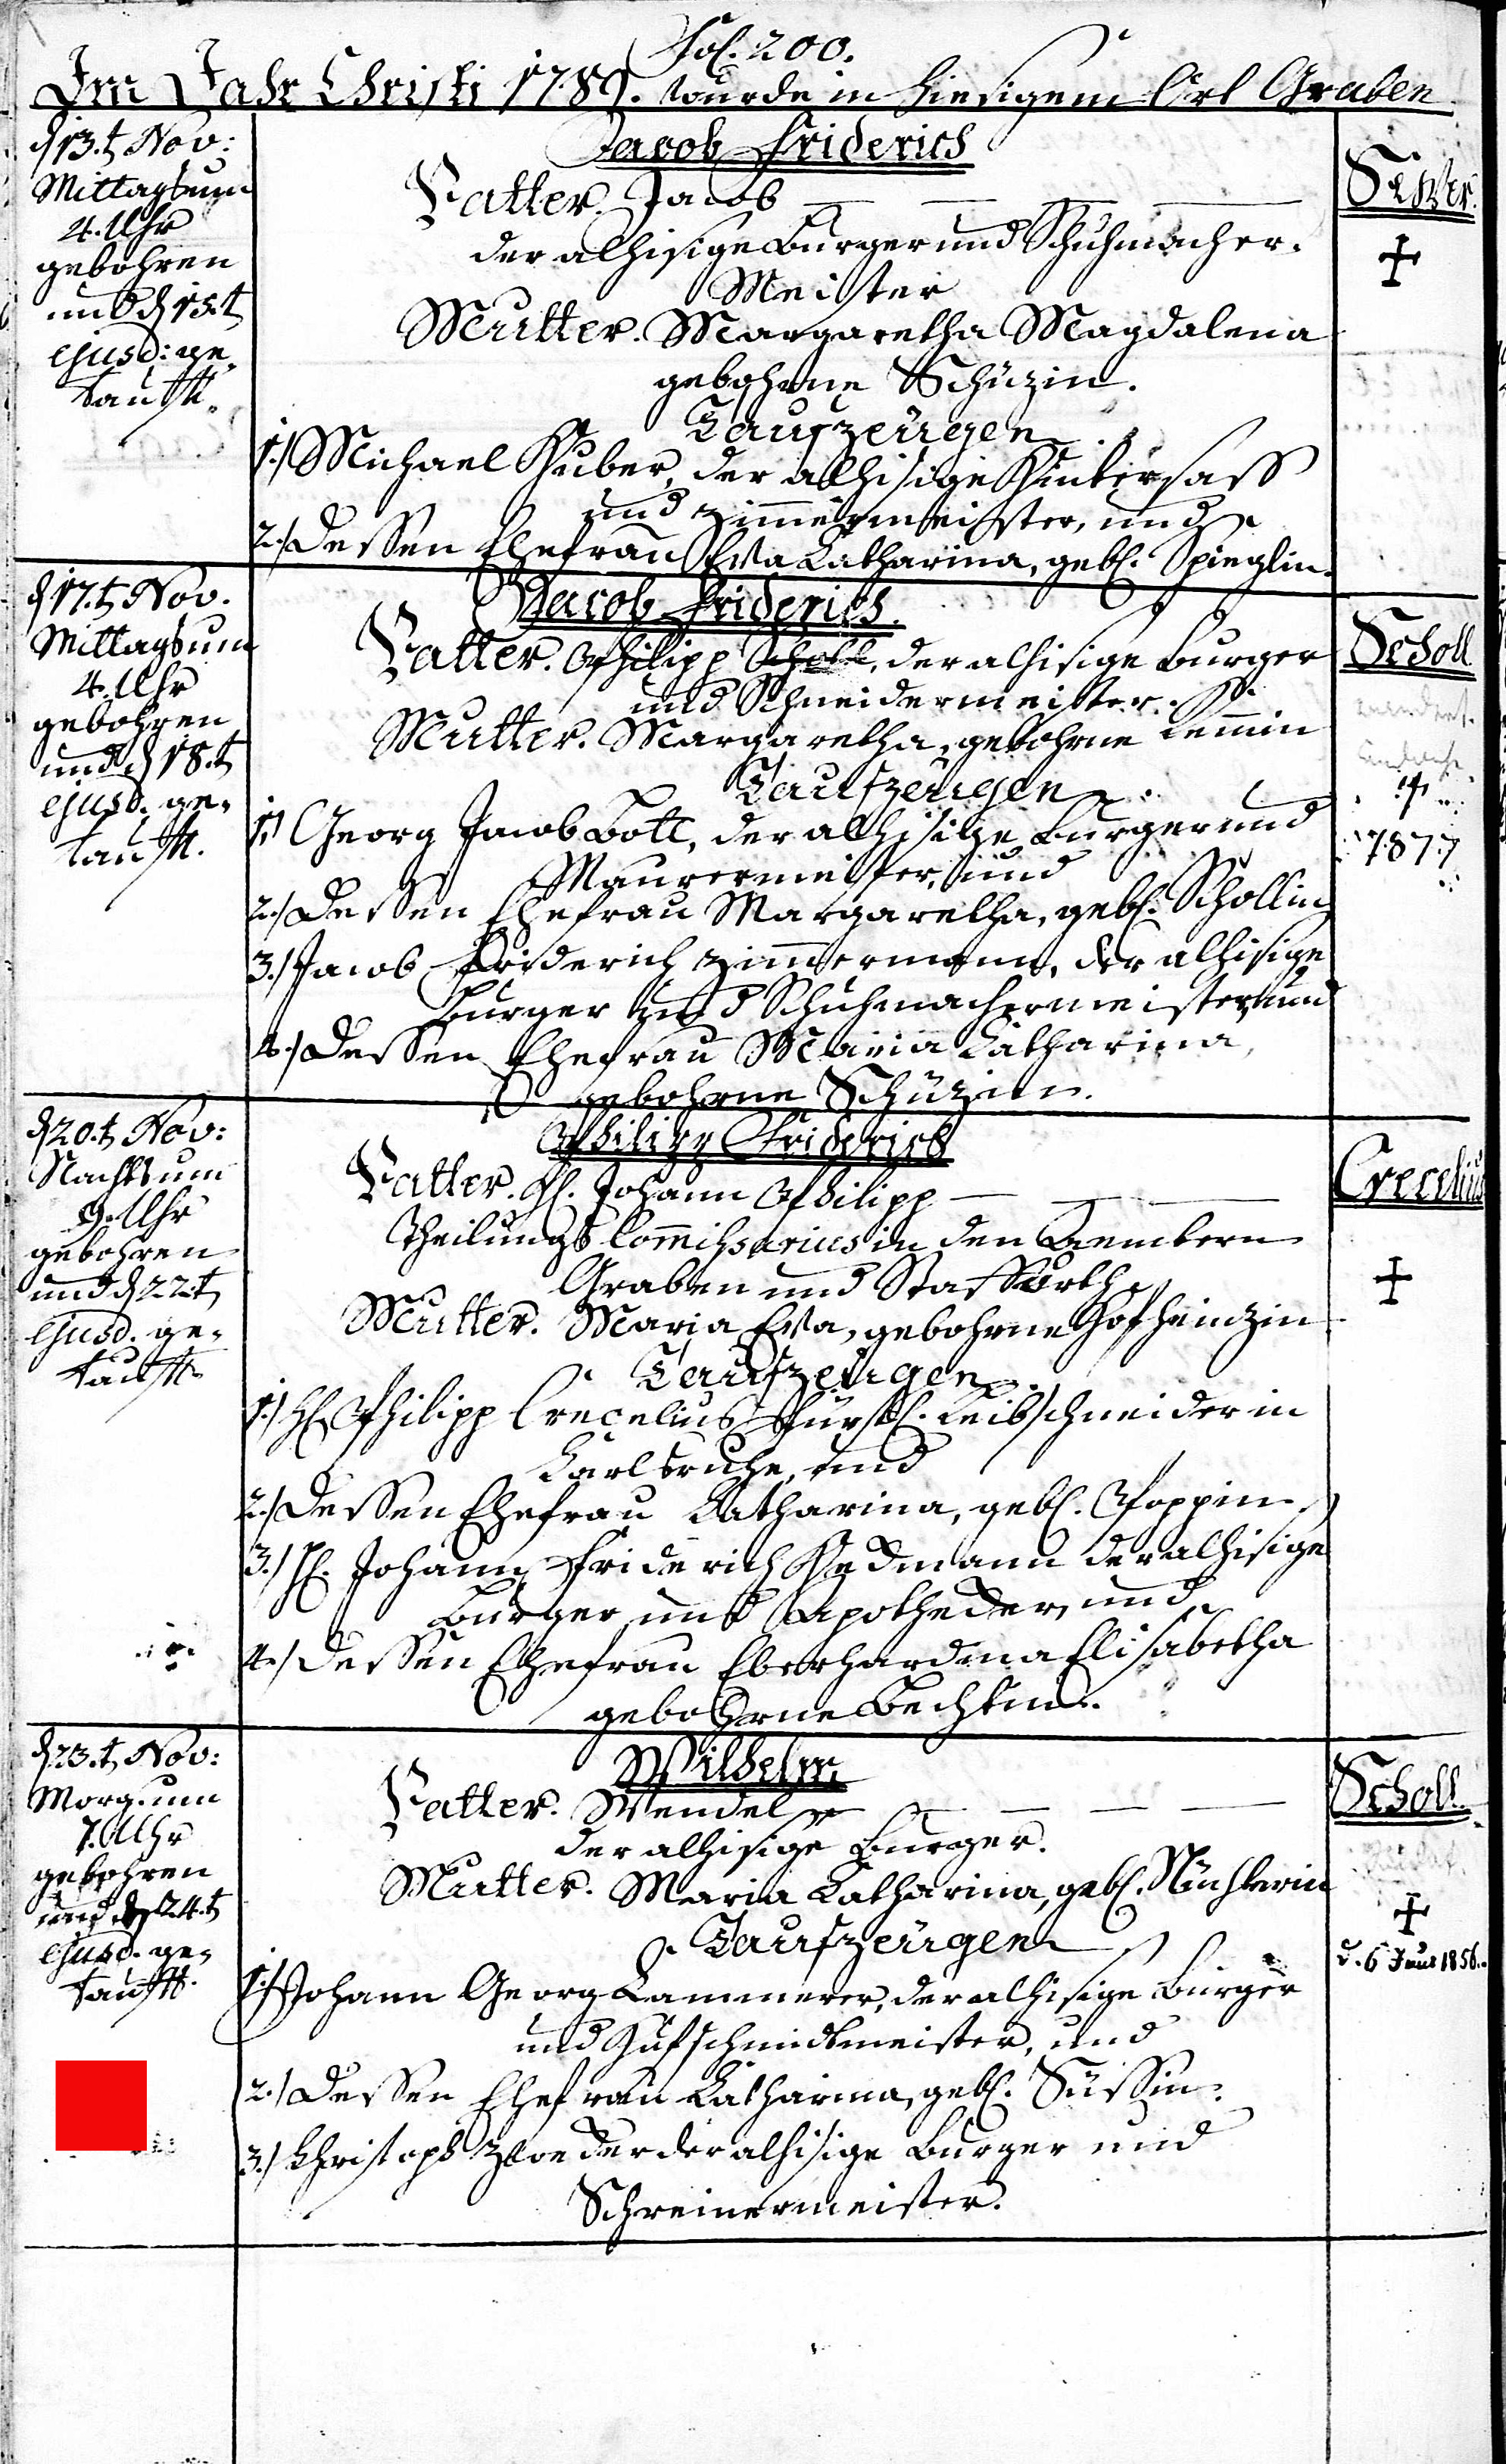 Fol. 200.
Im Jahr Christi 1789. wurde in hiesigem Ort Graben
d 13.t Nov:
Mittags um
4. Uhr
gebohren
und d 15.t
ejusd: ge-
taufft.
Jacob Friderich
Vatter. Jacob
der alhisige Burger und Schuhmacher-
Meister
Mutter. Margaretha Magdalena
gebohrne Schüzin.
Taufzeugen
1.) Michael Huber, der alhisige Hintersass
und Zimmermeister, und
2.) Dessen Ehefrau Eva Catharina, gebl. Spieglin.
+
d 17.t Nov.
Mittags um
4. Uhr
gebohren
und d 18.t
ejusd. ge-
taufft.
Jacob Friderich.
Vatter. Philipp Scholl, der alhisige Burger
und Schneidermeister.
Mutter. Margaretha, gebohrne Kemmin
Taufzeugen
1.) Georg Jacob Bott, der alhisige Burger und
Maurermeister, und
2.) Dessen Ehefrau Margaretha, gebl. Schollin
3.) Jacob Friderich Zimmermann, der alhisige
Burger und Schuhmachermeister, und
4.) Dessen Ehefrau Maria Catharina,
gebohrne Schüzin.
Scholl
+
1877
d 20.t Nov:
Nachts um
9. Uhr
gebohren
und d 22.t
ejusd. ge-
taufft.
Philipp Friderich
Vatter. H. Johann Philipp
Theilungs Commissarius in den Aemtern
Graben und Staffurth
Mutter. Maria Eva, gebohrne Hofheinzin
Taufzeugen
1.) H. Philipp Crecelius Fürstl. Leibschneider in
Carlsruhe, und
2.) Dessen Ehefrau Catharina, gebl.
3.) H. Johann Friderich Redmann der alhisige
Burger und Apothecker, und
4.) Dessen Ehefrau Eberhardina Elisabetha
gebohrne Bechtin.
Crecelius
+
d 23.t Nov:
Morg. um
7. Uhr
gebohren
und d 24.t
ejusd. ge-
taufft.
Wilhelm
Vatter. Wendel
der alhisige Burger.
Mutter. Maria Catharina, gebl.
Taufzeugen
1.) Johann Georg Cammerer, der alhisige Burger
und Hufschmidtmeister, und
2.) Dessen Ehefrau Catharina, gebl. Süssin.
3.) Christoph der alhisige Burger und
Schreinermeister.
Scholl.
+
d. 6 1856.